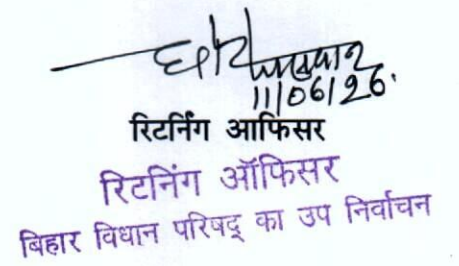 11/06/26.
रिटर्निंग आफिसर
रिटर्निंग ऑफिसर
बिहार विधान परिषद् का उप निर्वाचन